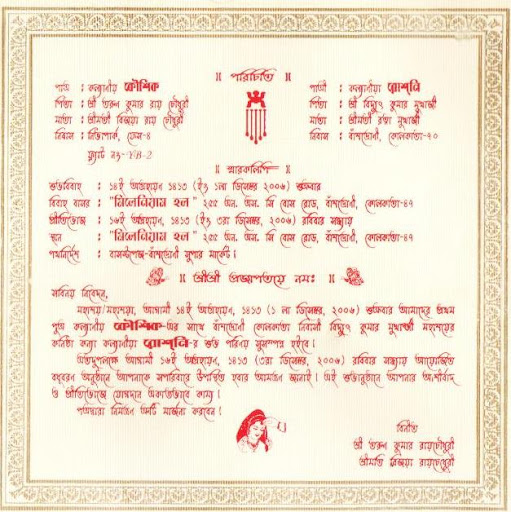 ॥ পরিচিতি ॥
পাত্র : কল্যানীয় কৌশিক
পিতা : শ্রী তরুন কুমার রায় চৌধুরী
মাতা : শ্রীমতী বিজয়া রায় চৌধুরী
নিবাস :
ফ্ল্যাট নং-YB-2
পাত্রী : কল্যানীয়া রোশনি
পিতা : শ্রী বিদ্যুৎ কুমার মুখার্জী
মাতা : শ্রীমতী রত্না মুখার্জী
নিবাস : বাঁশদ্রোনী, কোলকাতা-৭০
॥ স্মারকলিপি ॥
শুভবিবাহ : ১৪ই অগ্রহায়ন ১৪১৩ (ইং ১লা ডিসেম্বর, ২০০৬) শুক্রবার
বিবাহ বাসর : "মিলেনিয়াম হল" ২৫৫ এন. এস. সি বোস রোড, বাঁশদ্রোনী, কোলকাতা-৪৭
প্রীতিভোজ : ১৬ই অগ্রহায়ন, ১৪১৩ (ইং ৩রা ডিসেম্বর, ২০০৬) রবিবার সন্ধ্যায়
স্থান : "মিলেনিয়াম হল" ২৫৫ এন. এস. সি বোস রোড, বাঁশদ্রোনী, কোলকাতা-৪৭
পথনির্দেশ : বাসস্টপেজ-বাঁশদ্রোনী সুপার মার্কেট।
॥ শ্রীশ্রী প্রজাপতয়ে নমঃ ॥
সবিনয় নিবেদন,
মহাশয়/মহাশয়া, আগামী ১৪ই অগ্রহায়ন, ১৪১৩ (১ লা ডিসেম্বর, ২০০৬) শুক্রবার আমাদের প্রথম
পুত্র কল্যানীয় কৌশিক-এর সাথে বাঁশদ্রোনী কোলকাতা নিবাসী বিদ্যুৎ কুমার মুখার্জী মহাশয়ের
কনিষ্ঠা কন্যা কল্যানীয়া রোশনি-র শুভ পরিনয় সুসম্পন্ন হইবে।
এতদুপলক্ষে আগামী ১৬ই অগ্রহায়ন, ১৪১৩ (৩রা ডিসেম্বর, ২০০৬) রবিবার সন্ধ্যায় আয়োজিত
বধূবরন অনুষ্ঠানে আপনাকে সপরিবারে উপস্থিত হবার আমন্ত্রন জানাই। এই শুভানুষ্ঠানে আপনার আশীর্বাদ
ও প্রীতিভোজে যোগদান একান্তভাবে কাম্য।
পত্রদ্বারা নিমন্ত্রন ত্রুটি মার্জনা করবেন।
বিনীত
শ্রী তরুন কুমার রায়চৌধুরী
শ্রীমতি বিজয়া রায়চৌধুরী